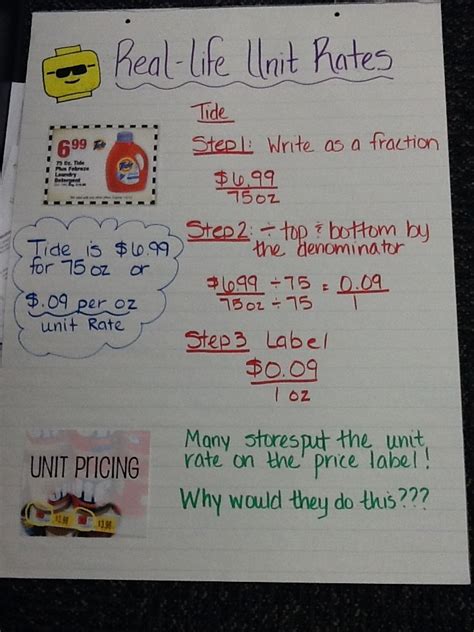 Real-Life Unit Rates
Tide
Step 1: Write as a fraction
$6.99
75 oz
6.99
75 Oz. Tide
Plus Febreze
Laundry
Detergent
Tide
Step 2: ÷ top & bottom by
the denominator
$6.99 ÷ 75 = 0.09
75oz ÷ 75 1
Tide is $6.99
for 75 oz or
$.09 per oz
unit Rate
Step 3 Label
$0.09
1 oz
UNIT PRICING
$3.98
$3.98
Many storesput the unit
rate on the price label!
Why would they do this???